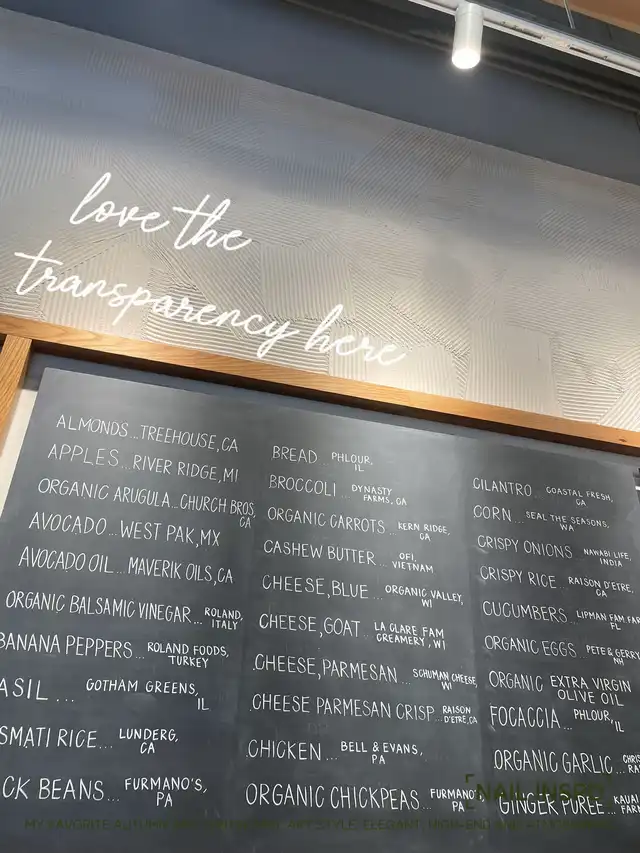 love the
transparency here
ALMONDS...TREEHOUSE,CA
APPLES...RIVER RIDGE,MI
ORGANIC ARUGULA...CHURCH BROS,
CA
AVOCADO...WEST PAK,MX
AVOCADO OIL...MAVERIK OILS,CA
ORGANIC BALSAMIC VINEGAR...ROLAND,
ITALY
BANANA PEPPERS...ROLAND FOODS,
TURKEY
ASIL...GOTHAM GREENS,
IL
SMATI RICE...LUNDERG,
CA
CK BEANS...FURMANO'S,
PA
BREAD...PHLOUR,
IL
BROCCOLI...DYNASTY
FARMS,CA
ORGANIC CARROTS...KERN RIDGE,
CA
CASHEW BUTTER...OFI,
VIETNAM
CHEESE,BLUE...ORGANIC VALLEY,
WI
CHEESE,GOAT...LA CLARE FAM
CREAMERY,WI
CHEESE,PARMESAN...SCHUMAN CHEESE,
WI
CHEESE PARMESAN CRISP...RAISON
D'ETRE,CA
CHICKEN...BELL & EVANS,
PA
ORGANIC CHICKPEAS...FURMANO'S,
PA
CILANTRO...COASTAL FRESH,
CA
CORN...SEAL THE SEASONS,
WA
CRISPY ONIONS...NAWABI LIFE,
INDIA
CRISPY RICE...RAISON D'ETRE,
CA
CUCUMBERS...LIPMAN FAM.FAR
FL
ORGANIC EGGS...PETE & GERRY
NH
ORGANIC EXTRA VIRGIN
OLIVE OIL
FOCACCIA...PHLOUR,
IL
ORGANIC GARLIC...CHRIS
RA
GINGER PUREE...KAUAI
FAR
NAIL INSPO
MY FAVORITE AUTUMN
ART STYLE, ELEGANT, HIGH-END